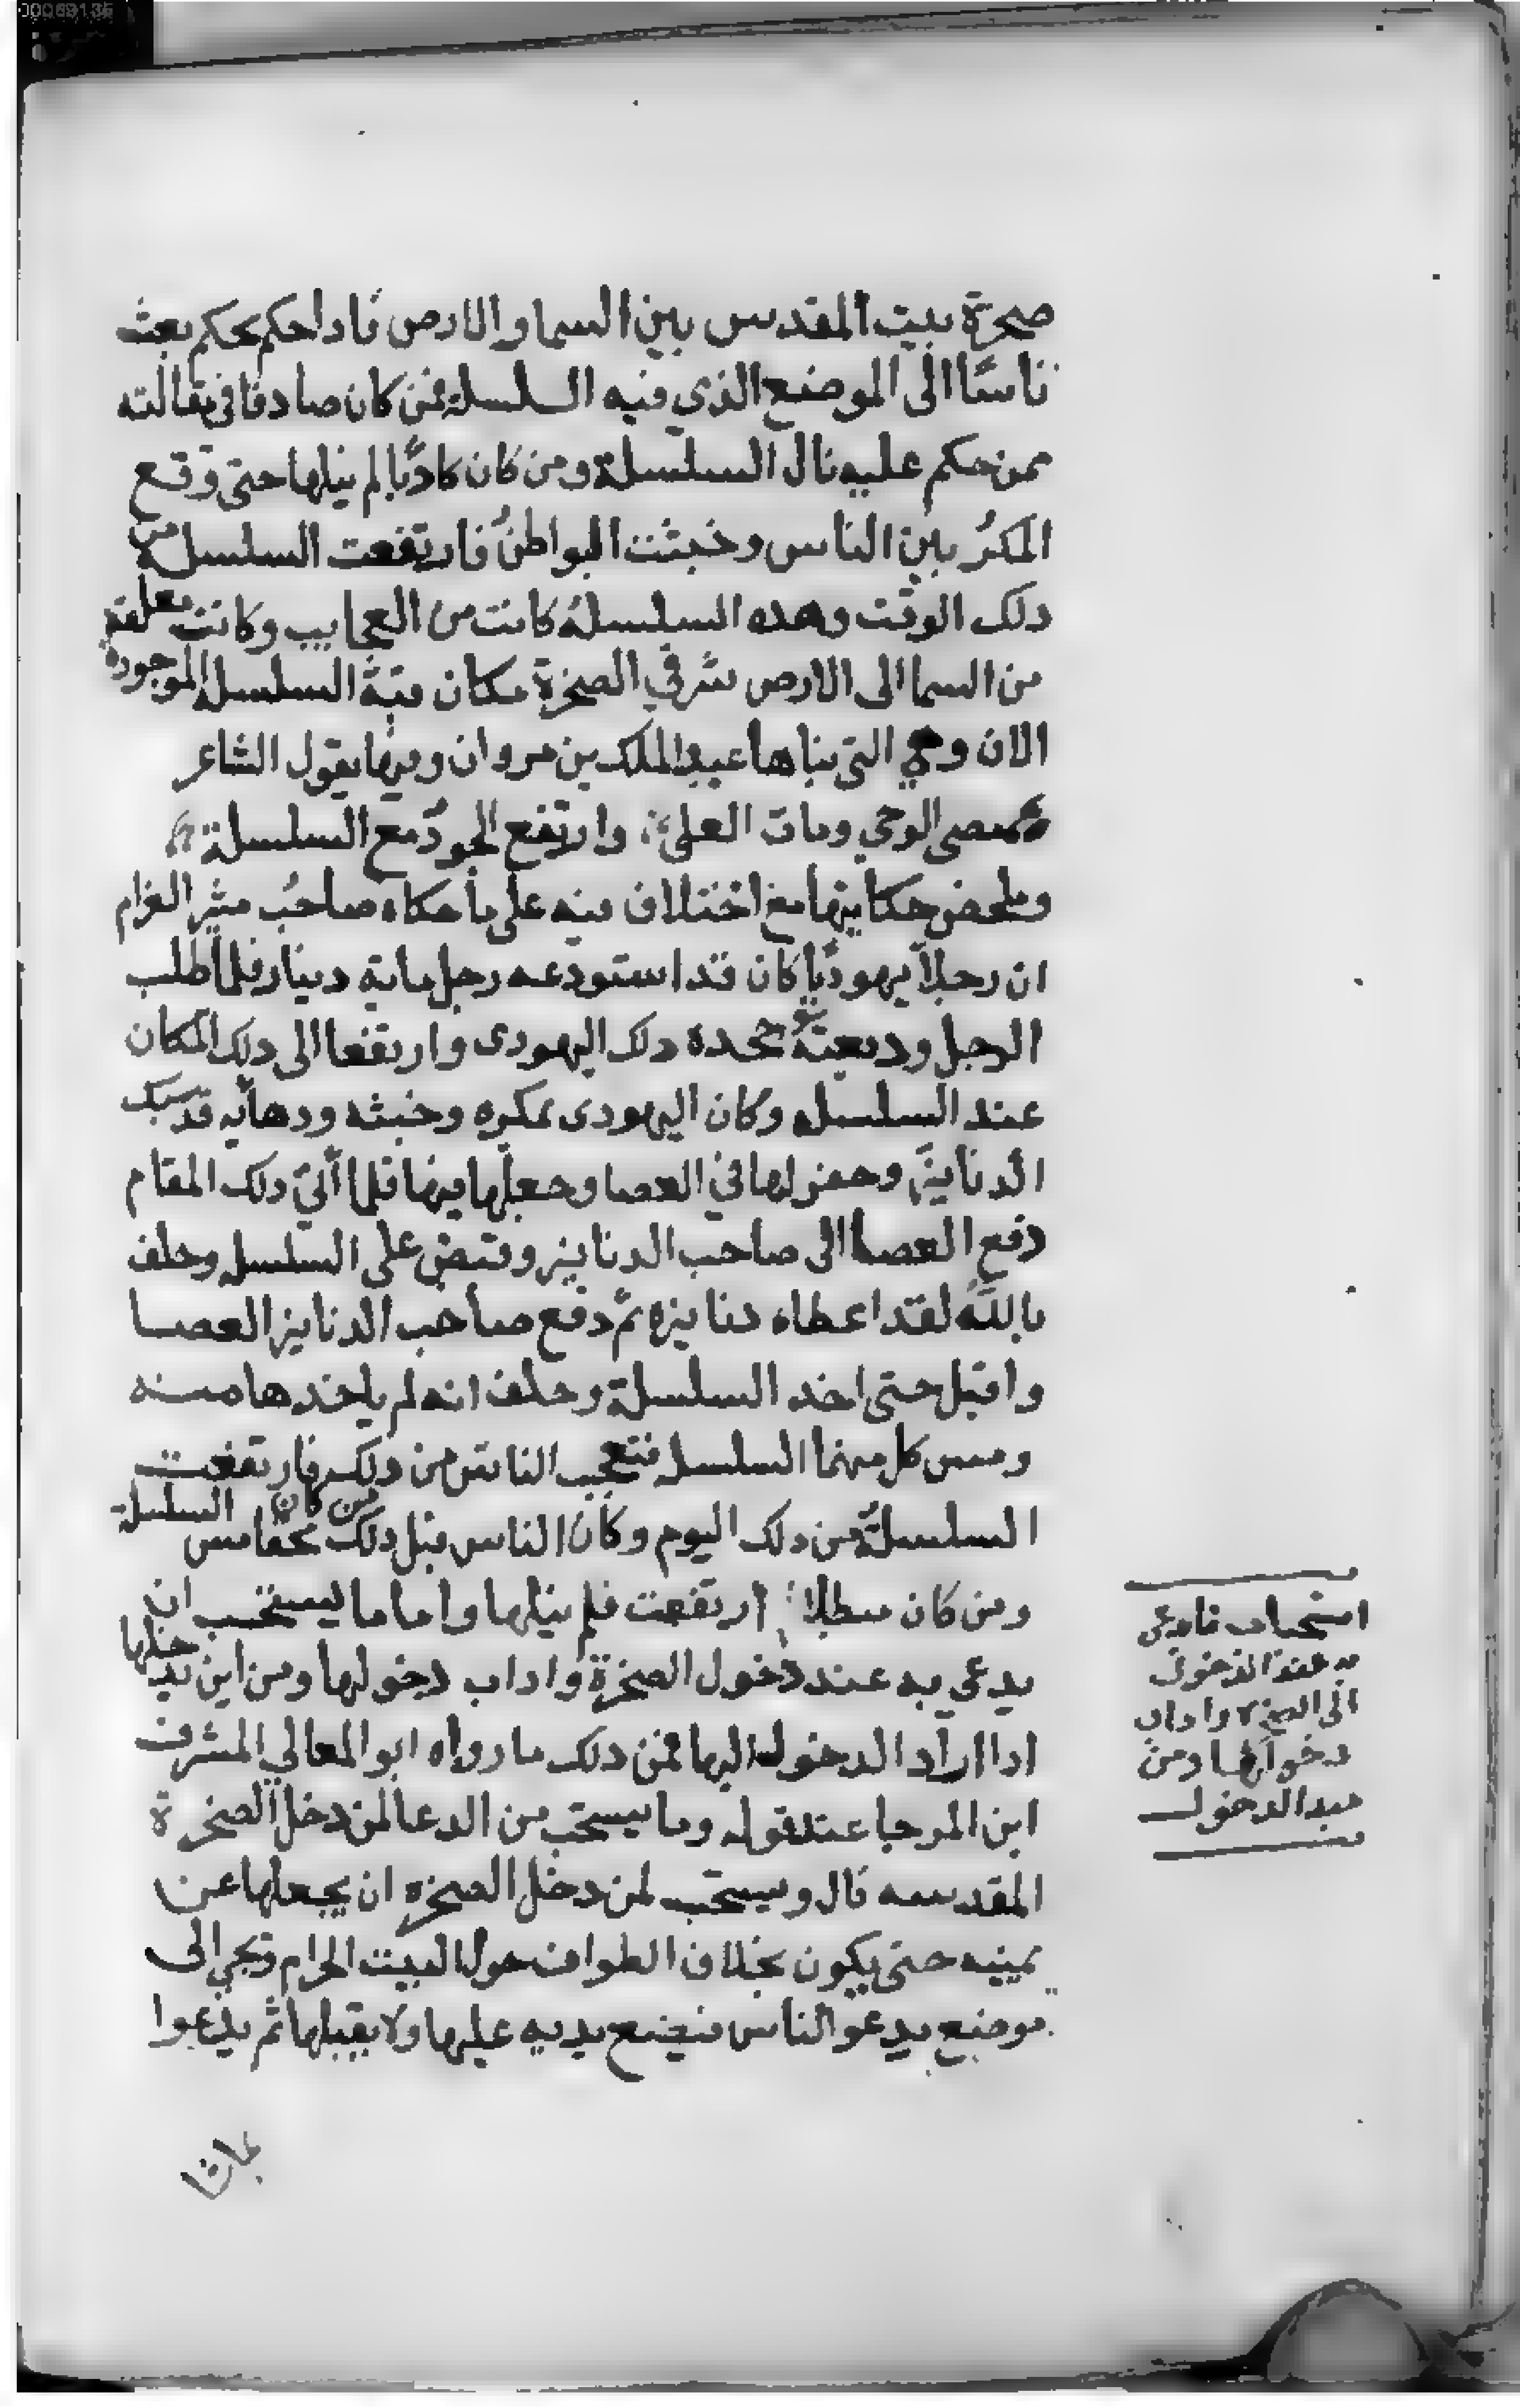 صخرة بيت المقدس بين السما والارض فاداحكم بحكم بعث
ناسًا الى الموضع الذي فيه السلسلة فمن كان صادقا في مقالته
ممن حكم عليه نال السلسلة ومن كان كاذبا لم ينلها حتى وقع
المكرُ بين الناس وخبثت البواطنُ فارتفعت السلسلة من
دلك الوقت وهده السلسلة كانت من العجايب وكانت معلقة
من السما الى الارص شرقي الصخرة مكان قبة السلسلة الموجودة
الان وهي التي بناها عبد الملك بن مروان وفيها يقول الشاعر
مصى الوحي ومات العلى وارتفع الجود مع السلسلة
وملخص حكايتها مع اختلاف فيه على ما حكاه صاحبُ مثير الغرام
ان رجلاً يهوديًا كان قد استودعه رجل ماية دينار فلما طلب
الرجل وديعته جحده دلك اليهودى وارتفعا الى دلك المكان
عند السلسله وكان اليهودى بمكره وخبثه ودهايه قد سبك
الدنانير وحفر لها في العصا وجعلها فيها فلما اتي دلك المقام
دفع العصا الى صاحب الدنانير وقبض على السلسله وحلف
بالله لقد اعطاه دنانيره ثم دفع صاحب الدنانير العصا
واقبل حتى اخد السلسلة وحلف انه لم ياخدها منه
ومس كل منهما السلسله فتعجب الناس من دلك فارتفعت
السلسلةُ من دلك اليوم وكان الناس قبل دلك من كان محقا مس السلسلة
ومن كان مبطلا ارتفعت فلم ينلها واما ما يستحب ان
يدعى به عند دخول الصخرة واداب دخولها ومن اين يدخلها
ادا اراد الدخول اليها فمن دلك ما رواه ابو المعالي المشرف
ابن المرجا عند قوله وما يستحب من الدعا لمن دخل الصخرة
المقدسه قال ويستحب لمن دخل الصخره ان يجعلها عن
يمينه حتى يكون بخلاف الطواف حول البيت الحرام ويجي الى
موضع يدعو الناس فيضع يديه عليها ولا يقبلها ثم يدعوا
استحباب ما يدعى
به عند الدخول
الى الصخرة واداب
دخولها ومن
عند الدخول
بما شا